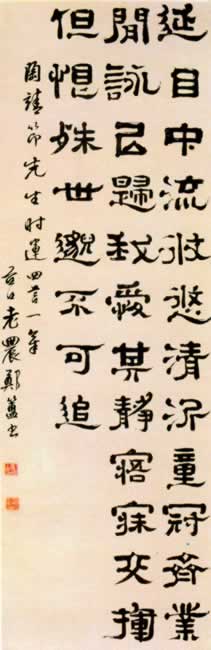 延目中流攸悠清沂童冠齊業
閒詠已歸我愛其靜寤寐交揮
但恨殊世邈不可追
陶靖節先生时運四言一章
谷口老農鄭簠書